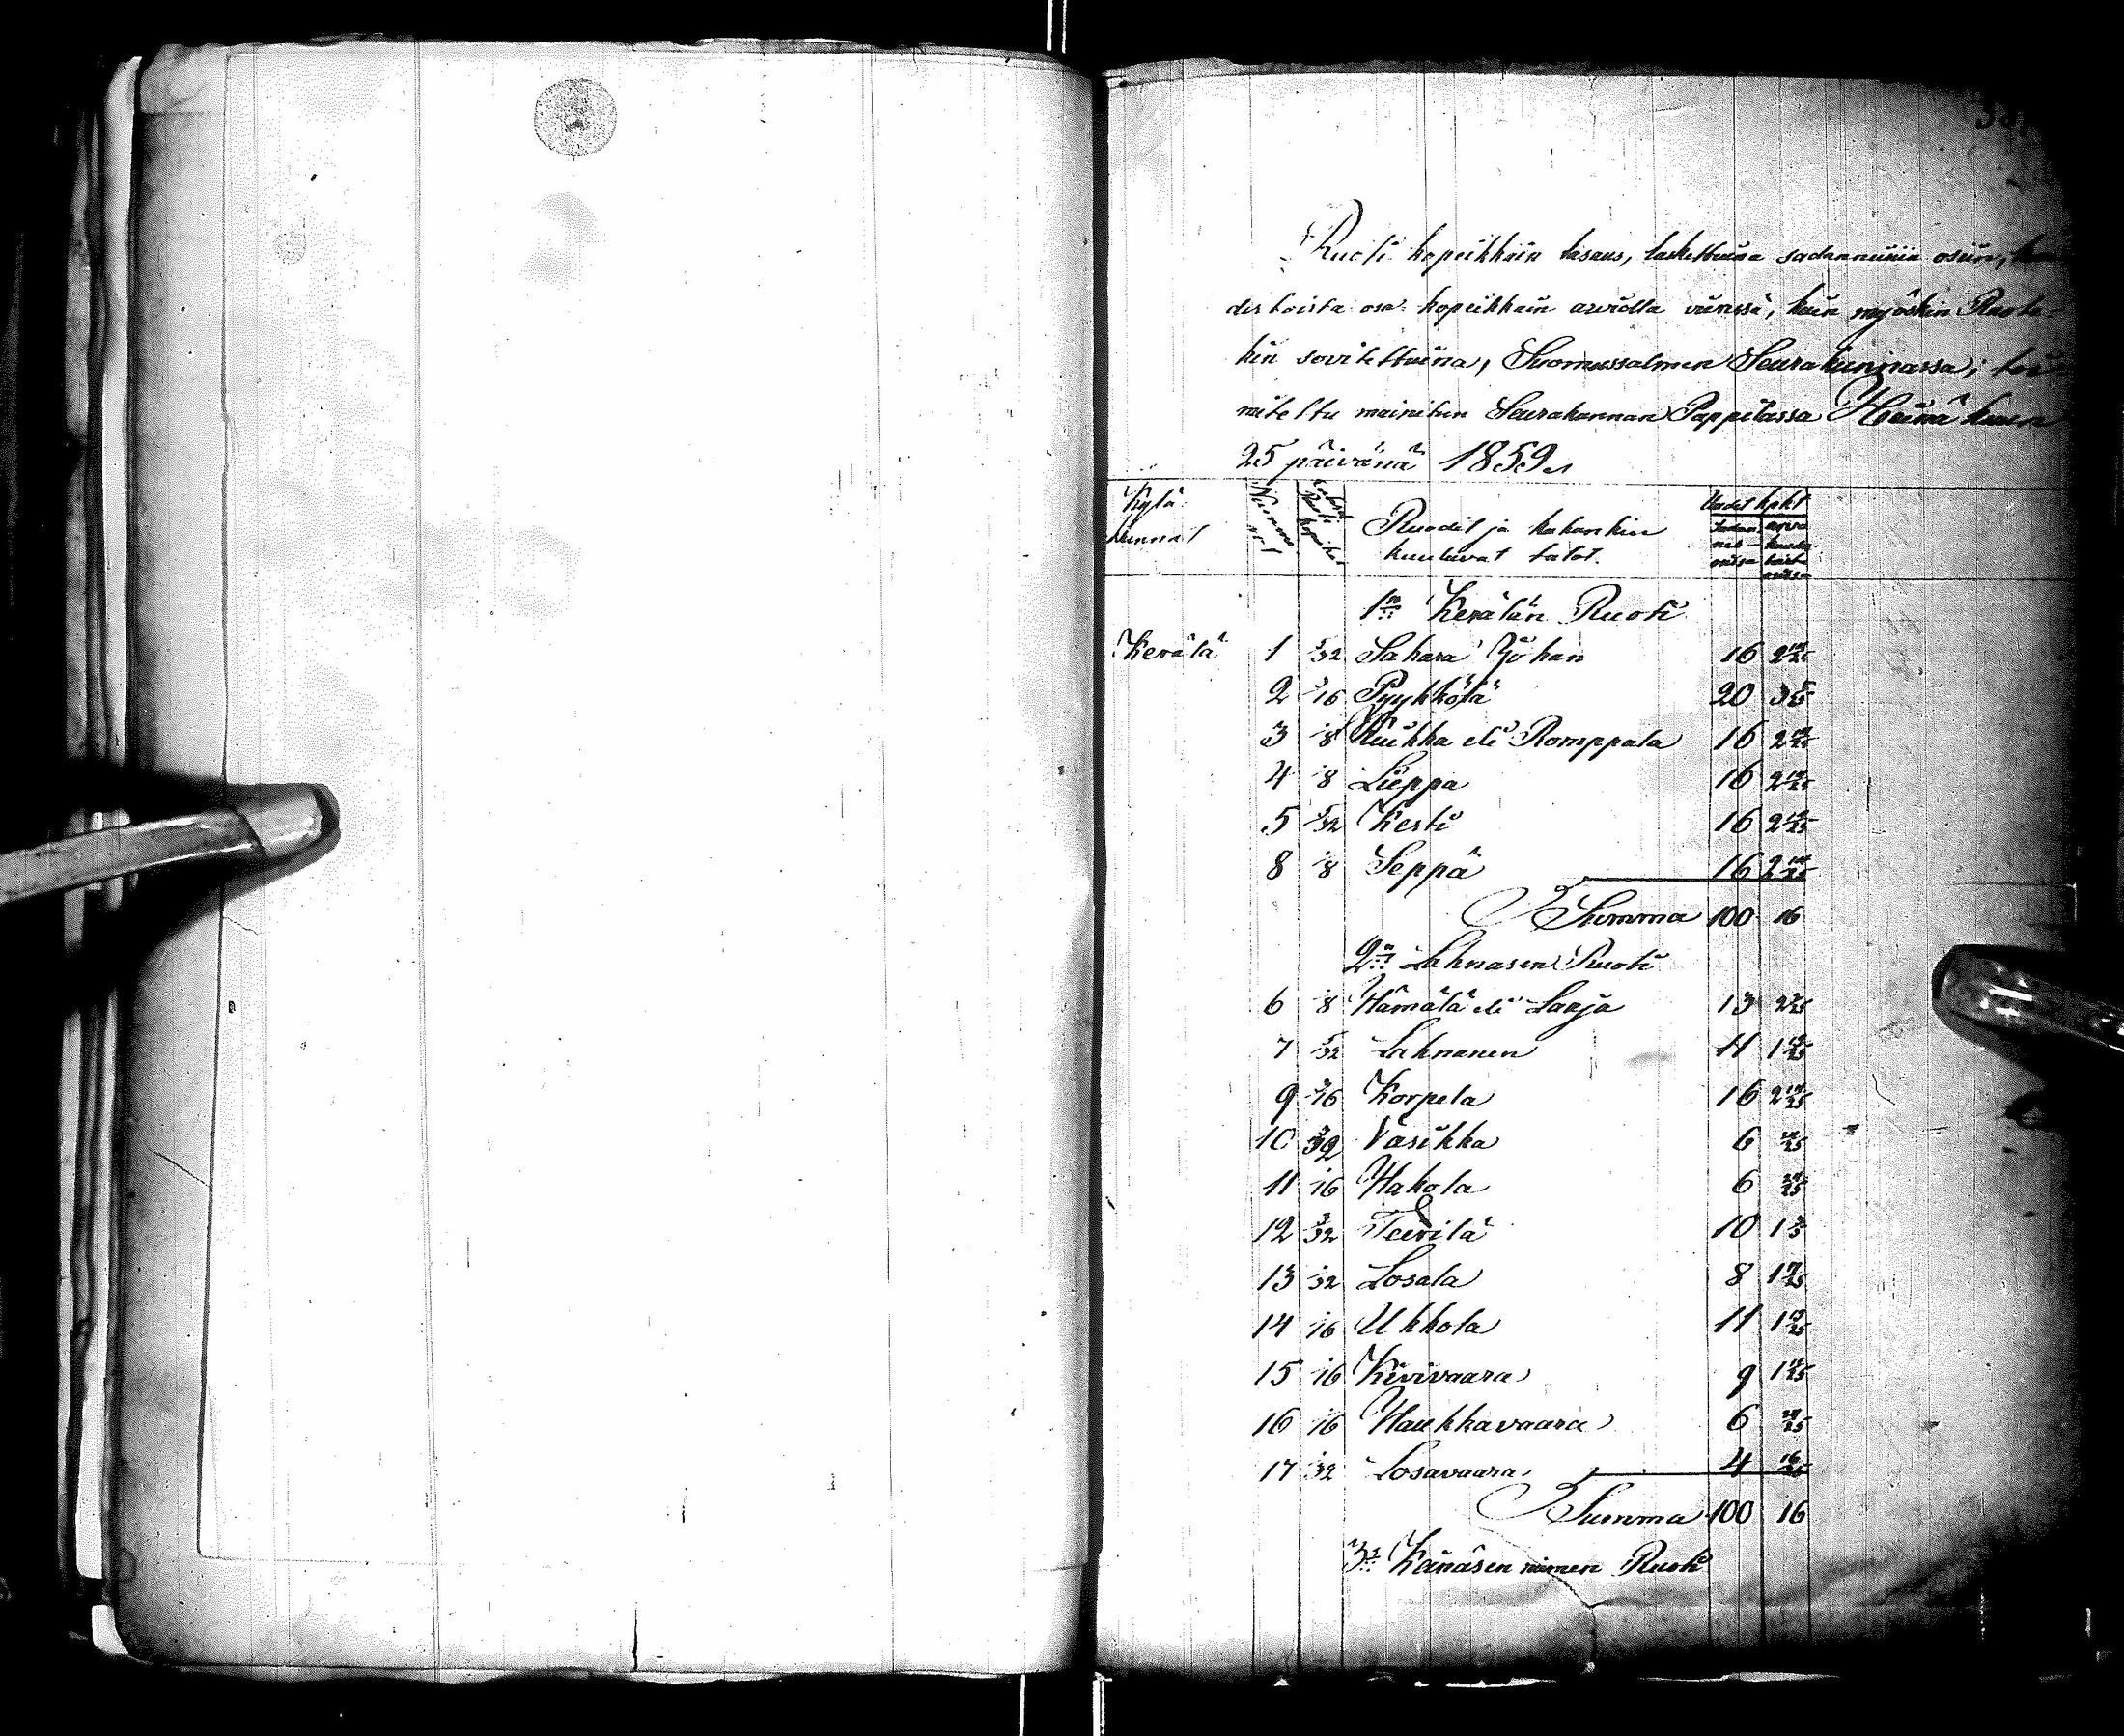 Ruoti kopeikkain tasaus, laskettuina sadannuisin osiin,
des toista osa kopeikkain arviolla viiressä, kuin myöskin Ruote-
hin sovitettuina, Suomussalmen Seurakunnassa; toi-
mitettu mainitun Seurakunnan Pappilassa Heinäkuun
25 päivänä 1859.
Kylä kunnat Numerot Ruodit ja kuhunkin kuuluvat talot. Uudet kpkt
1n Kerälän Ruoti
Kerälä 1 5/32 Sakara Johan 16 2 14/25
2 3/16 Pyykkölä 20 3 1/5
3 1/8 Kuikka eli Romppala 16 2 14/25
4 1/8 Lieppa 16 2 14/25
5 5/32 Kesti 16 2 14/25
8 1/8 Seppä 16 2 14/25
Summa 100 16
2n Lahnasen Ruoti
6 1/8 Hämälä eli Larja 13 2 2/25
7 5/32 Lahnanen 11 1 19/25
9 3/16 Korpela 16 2 14/25
10 3/32 Vasikka 6 24/25
11 1/16 Hakola 6 24/25
12 3/32 Teerilä 10 1 3/5
13 1/32 Losala 8 1 7/25
14 1/16 Ukkola 11 1 19/25
15 1/16 Kivivaara 9 1 11/25
16 1/16 Haukkavaara 6 24/25
17 1/32 Losavaara 4 16/25
Summa 100 16
3s Kainäsen niemen Ruoti